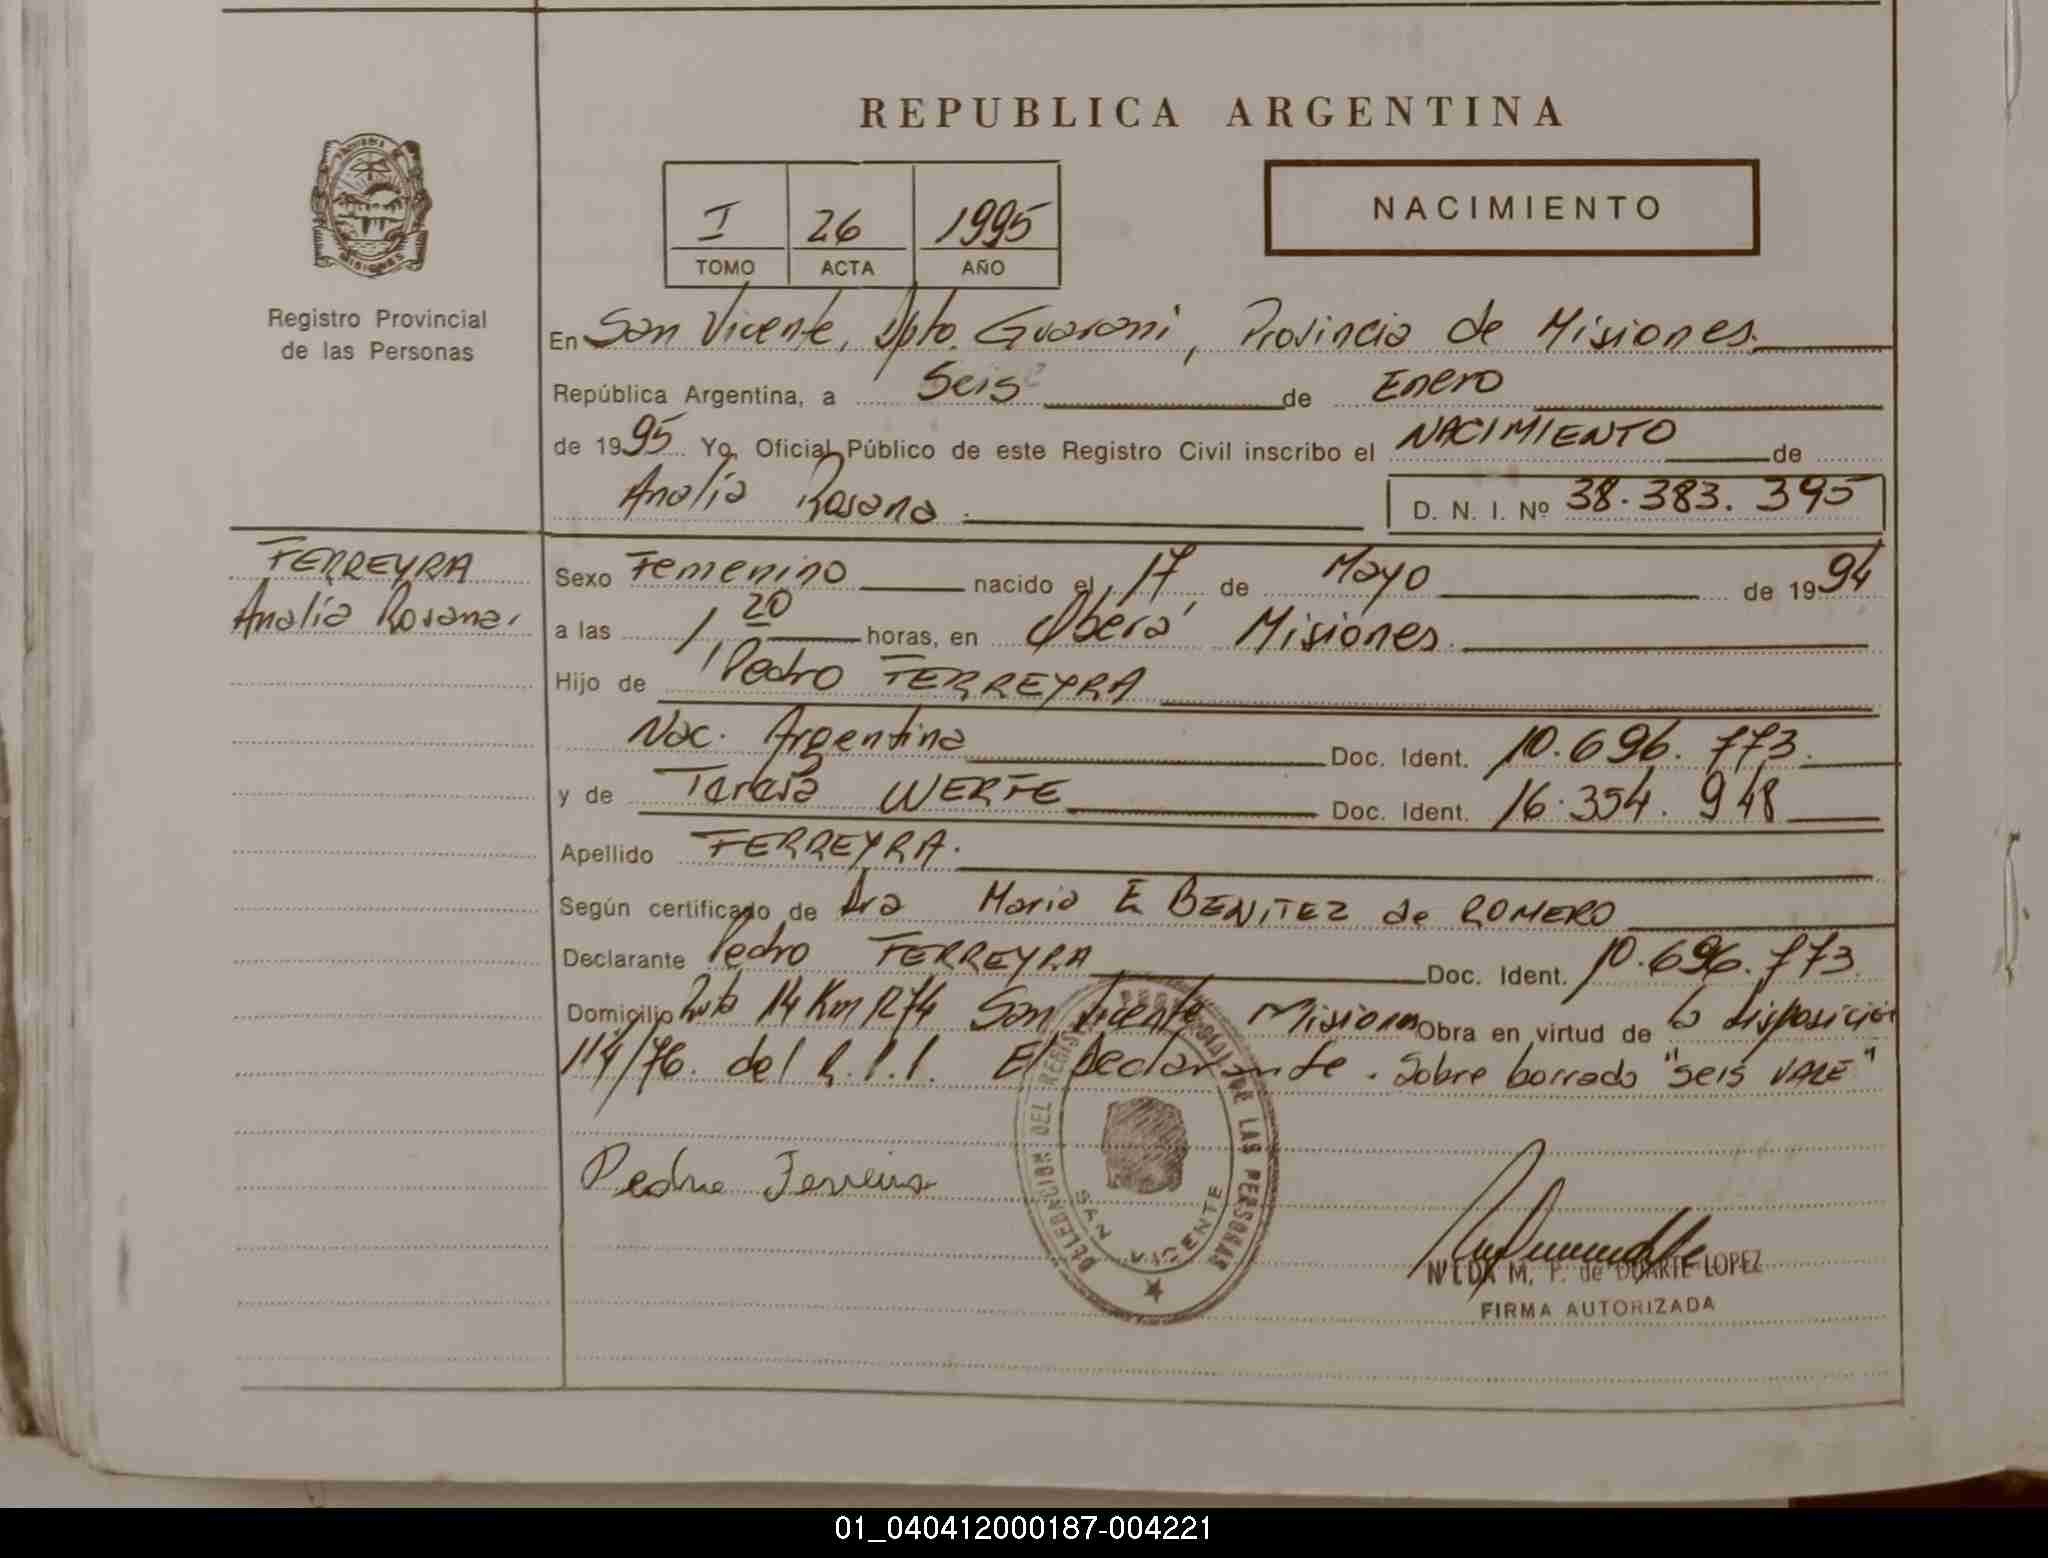 REPUBLICA ARGENTINA
I 26 1995
TOMO ACTA AÑO
NACIMIENTO
MISIONES
Registro Provincial
de las Personas
En San Vicente, Dpto. Guarani, Provincia de Misiones.
República Argentina, a Seis de Enero
de 1995 Yo, Oficial Público de este Registro Civil inscribo el NACIMIENTO de
Analía Rosana. D. N. I. Nº 38.383.395
FERREYRA
Analía Rosana.
Sexo Femenino nacido el 17 de Mayo de 1994
a las 1,20 horas, en Oberá, Misiones.
Hijo de Pedro FERREYRA
Nac. Argentina Doc. Ident. 10.696.773.
y de Teresa WERFE Doc. Ident. 16.354.948
Apellido FERREYRA.
Según certificado de Dra Maria E BENITEZ de ROMERO
Declarante Pedro FERREYRA Doc. Ident. 10.696.773.
Domicilio Ruta 14 Km 1274 San Vicente Misiones Obra en virtud de la disposición
114/76. del R.P.P. El Declarante. Sobre borrado "Seis VALE"
Pedro Ferreira
DELEGACION DEL REGISTRO PROVINCIAL DE LAS PERSONAS
SAN VICENTE
NILDA M. P. de DUARTE LOPEZ
FIRMA AUTORIZADA
01_040412000187-004221